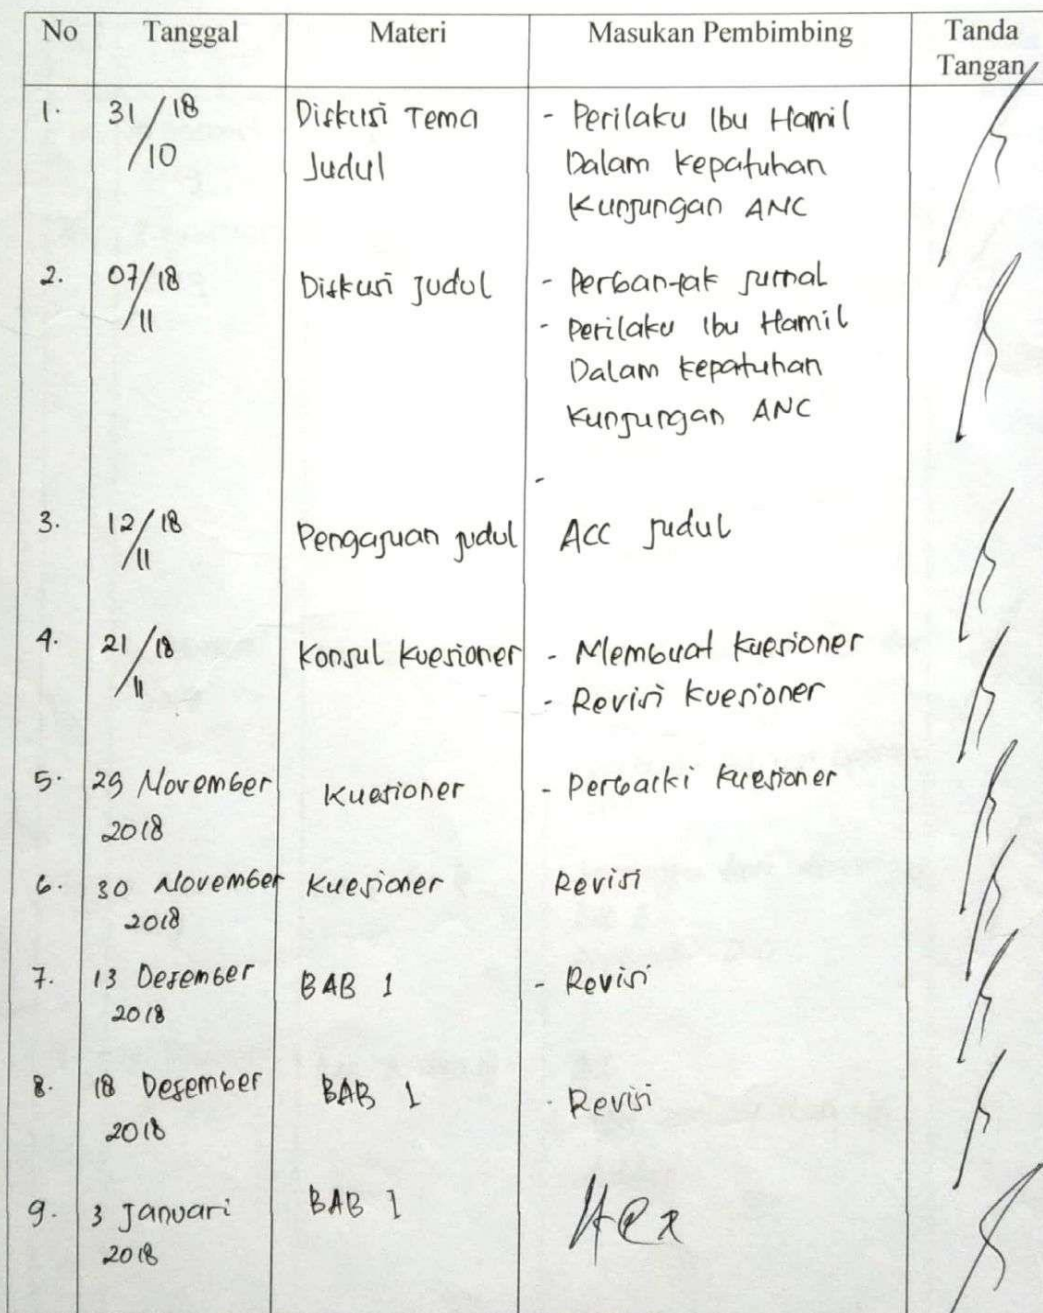 No Tanggal Materi Masukan Pembimbing Tanda
Tangan
1. 31/18 Diskusi Tema - Perilaku Ibu Hamil
/10 Judul Dalam kepatuhan
Kunjungan ANC
2. 07/18 Diskusi Judul - Perbanyak jurnal
/11 - Perilaku Ibu Hamil
Dalam kepatuhan
Kunjungan ANC
-
3. 12/18 Pengajuan judul ACC judul
/11
4. 21/18 Konsul kuesioner - Membuat kuesioner
/11 - Revisi kuesioner
5. 29 November Kuesioner - Perbaiki kuesioner
2018
6. 30 November Kuesioner Revisi
2018
7. 13 Desember BAB 1 - Revisi
2018
8. 18 Desember BAB 1 - Revisi
2018
9. 3 Januari BAB 1
2018